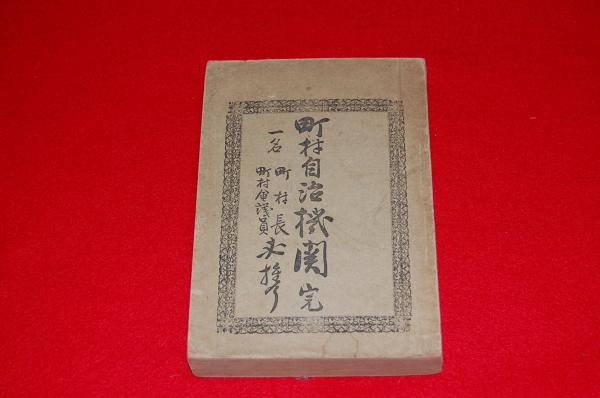 町村自治機関 完
一名 町村長 町村会議員 必携